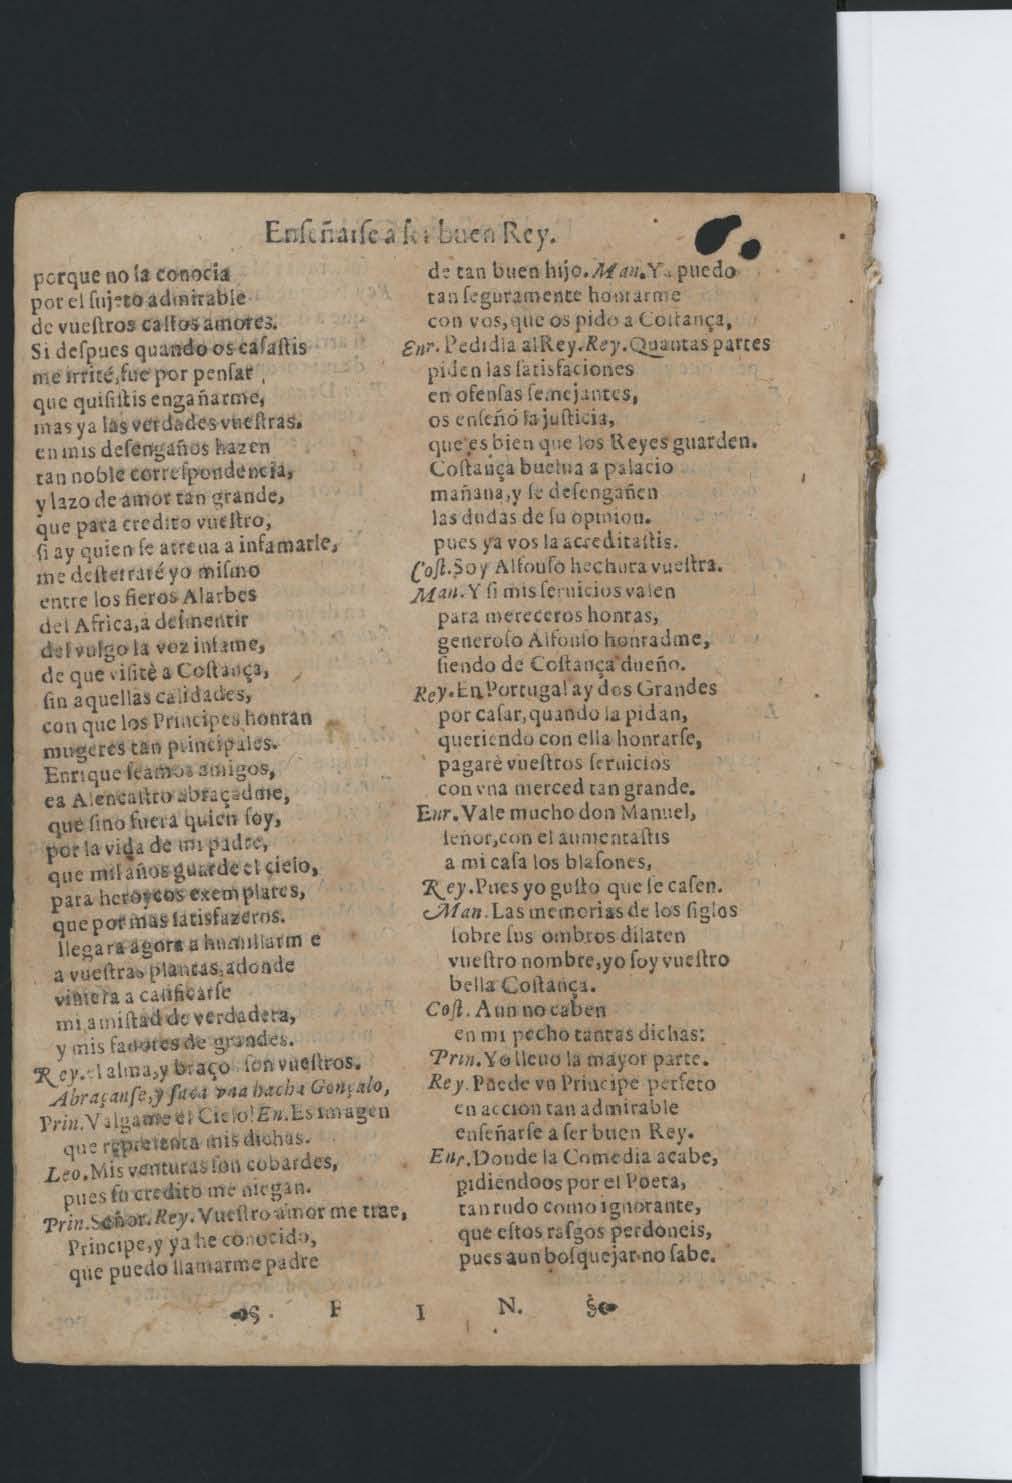 Enſeñarſe a ſer buen Rey.
porque no la conocia
por el ſujeto admirable
de vueſtros caſtos amores.
Si deſpues quando os caſaſtis
me irrité, fue por penſar,
que quiſiſtis engañarme,
mas ya las verdades vueſtras.
en mis deſengaños hazen
tan noble correſpondencia,
y lazo de amor tan grande,
que para credito vueſtro,
ſi ay quien ſe atreua a infamarle,
me deſterraré yo miſmo
entre los fieros Alarbes
del Africa, a deſmentir
del vulgo la voz infame,
de que viſitè a Coſtança,
ſin aquellas calidades,
con que los Principes honran
mugeres tan principales.
Enrique ſeamos amigos,
ea Alencaſtro abraçadme,
que ſino fuera quien ſoy,
por la vida de mi padre,
que mil años guarde el cielo,
para heroycos exemplares,
que por mas ſatisfazeros.
llegara agora a humillarm e
a vueſtras plantas, adonde
viniera a calificarſe
mi amiſtad de verdadera,
y mis fauores de grandes.
Rey. el alma, y braço ſon vueſtros.
Abraçanſe, y ſaca vna hacha Gonçalo,
Prin. Valgame el Cielo! En. Es imagen
que repreſenta mis dichas.
Leo. Mis venturas ſon cobardes,
pues ſu credito me niegan.
Prin. Señor. Rey. Vueſtro amor me trae,
Principe, y ya he conocido,
que puedo llamarme padre
de tan buen hijo. Man. Ya puedo
tan ſeguramente honrarme
con vos, que os pido a Coſtança,
Enr. Pedidla al Rey. Rey. Quantas partes
piden las ſatisfaciones
en ofenſas ſemejantes,
os enſeñó la juſticia,
que es bien que los Reyes guarden.
Coſtança buelua a palacio
mañana, y ſe deſengañen
las dudas de ſu opinion.
pues ya vos la acreditaſtis.
Coſt. Soy Alfonſo hechura vueſtra.
Man. Y ſi mis ſeruicios valen
para mereceros honras,
generoſo Alfonſo honradme,
ſiendo de Coſtança dueño.
Rey. En Portugal ay dos Grandes
por caſar, quando la pidan,
queriendo con ella honrarſe,
pagarè vueſtros ſeruicios
con vna merced tan grande.
Enr. Vale mucho don Manuel,
ſeñor, con el aumentaſtis
a mi caſa los blaſones,
Rey. Pues yo guſto que ſe caſen.
Man. Las memorias de los ſiglos
ſobre ſus ombros dilaten
vueſtro nombre, yo ſoy vueſtro
bella Coſtança.
Coſt. Aun no caben
en mi pecho tantas dichas:
Prin. Yo lleuo la mayor parte.
Rey. Puede vn Principe perfeto
en accion tan admirable
enſeñarſe a ſer buen Rey.
Enr. Donde la Comedia acabe,
pidiendoos por el Poeta,
tan rudo como ignorante,
que eſtos raſgos perdoneis,
pues aun boſquejar no ſabe.
F I N.